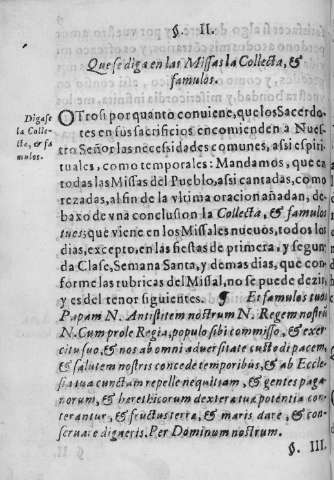 §. II.
Que se diga en las Missas la Collecta, &
famulos.
Digase
la Colle-
cta, & fa
mulos.
OTrosi por quanto conviene, que los Sacerdo-
tes en sus sacrificios encomienden a Nues-
tro Señor las necessidades comunes, assi espiri-
tuales, como temporales: Mandamos, que en
todas las Missas del Pueblo, assi cantadas, como
rezadas, al fin de la vltima oracion añadan, de-
baxo de vna conclusion la Collecta, & famulos
tuos; que viene en los Missales nueuos, todos los
dias, excepto, en las fiestas de primera, y segun
da Clase, Semana Santa, y demas dias, que con-
forme las rubricas del Missal, no se puede dezir,
y es del tenor siguientes. ¶ Et famulos tuos
Papam N. Antistitem nostrum N. Regem nostrũ
N. Cum prole Regia, populo sibi commisso, & exer
citu suo, & nos ab omni aduersitate custodi pacem,
& salutem nostris concede temporibus, & ab Eccle-
sia tua cunctam repelle nequitiam, & gentes paga
norum, & hærethicorum dextera tua potentia con-
terantur, & fructus terræ, & maris dare, & con-
seruare digneris. Per Dominum nostrum.
§. III.